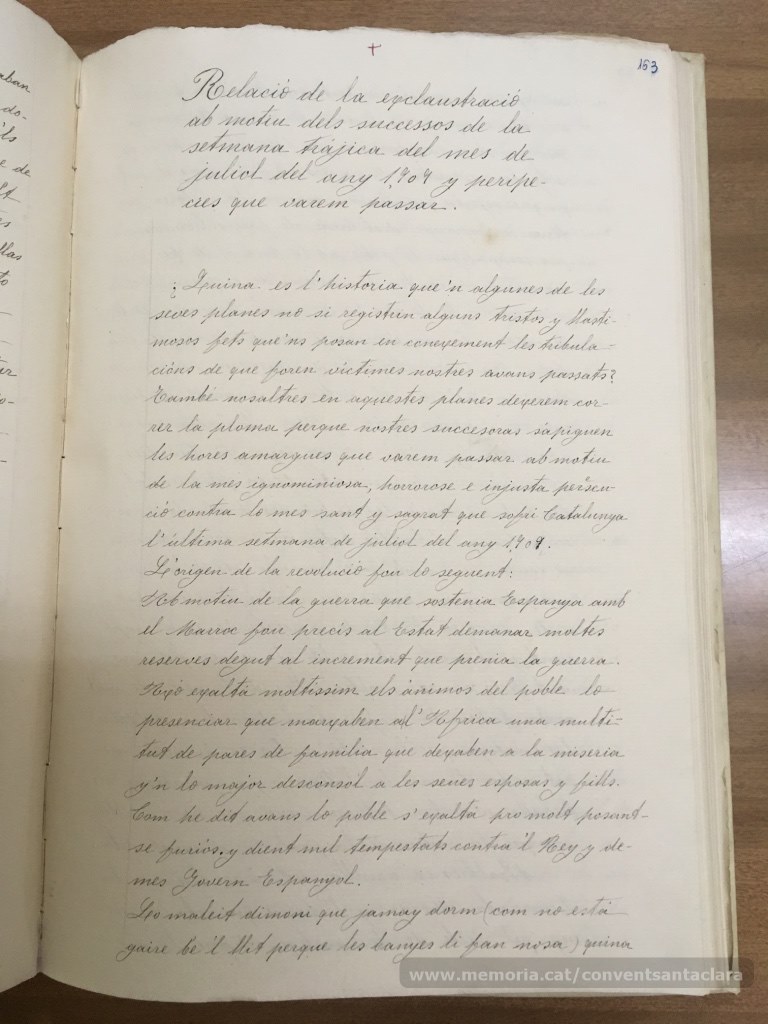 +
153
Relació de la exclaustració
ab motiu dels successos de la
setmana tràjica del mes de
juliol del any 1,909 y peripe-
cies que varem passar.
¿ Quina es l'historia que'n algunes de les
seves planes no si registrin alguns tristos y llasti-
mosos fets que'ns posan en conexement les tribula-
cións de que foren víctimes nostres avans passats?
També nosaltres en aquestes planes dexerem cor-
rer la ploma perque nostres succesoras sapiguen
les hores amargues que varem passar ab motiu
de la mes ignominiosa, horrorose e injusta persecu-
ció contra lo mes sant y sagrat que sofrí Catalunya
l'última setmana de juliol del any 1,909.
L'origen de la revolució fou lo seguent:
Ab motiu de la guerra que sostenia Espanya amb
el Marroc fou precís al Estat demanar moltes
reserves degut al increment que prenia la guerra.
Axó exaltá moltissim els ànimos del poble lo
presenciar que marxaben al' Africa una multi-
tut de pares de familia que dexaben a la miseria
y'n lo major desconsol a les seues esposas y fills.
Com he dit avans lo poble s'exaltá pro molt posant-
se furiós y dient mil tempestats contra 'l Rey y de-
mes Govern Espanyol.
Lo maleit dimoni que jamay dorm (com no está
gaire be 'l llit perque les banyes li fan nosa) quina
ils
e de
llas
to
www.memoria.cat/conventsantaclara